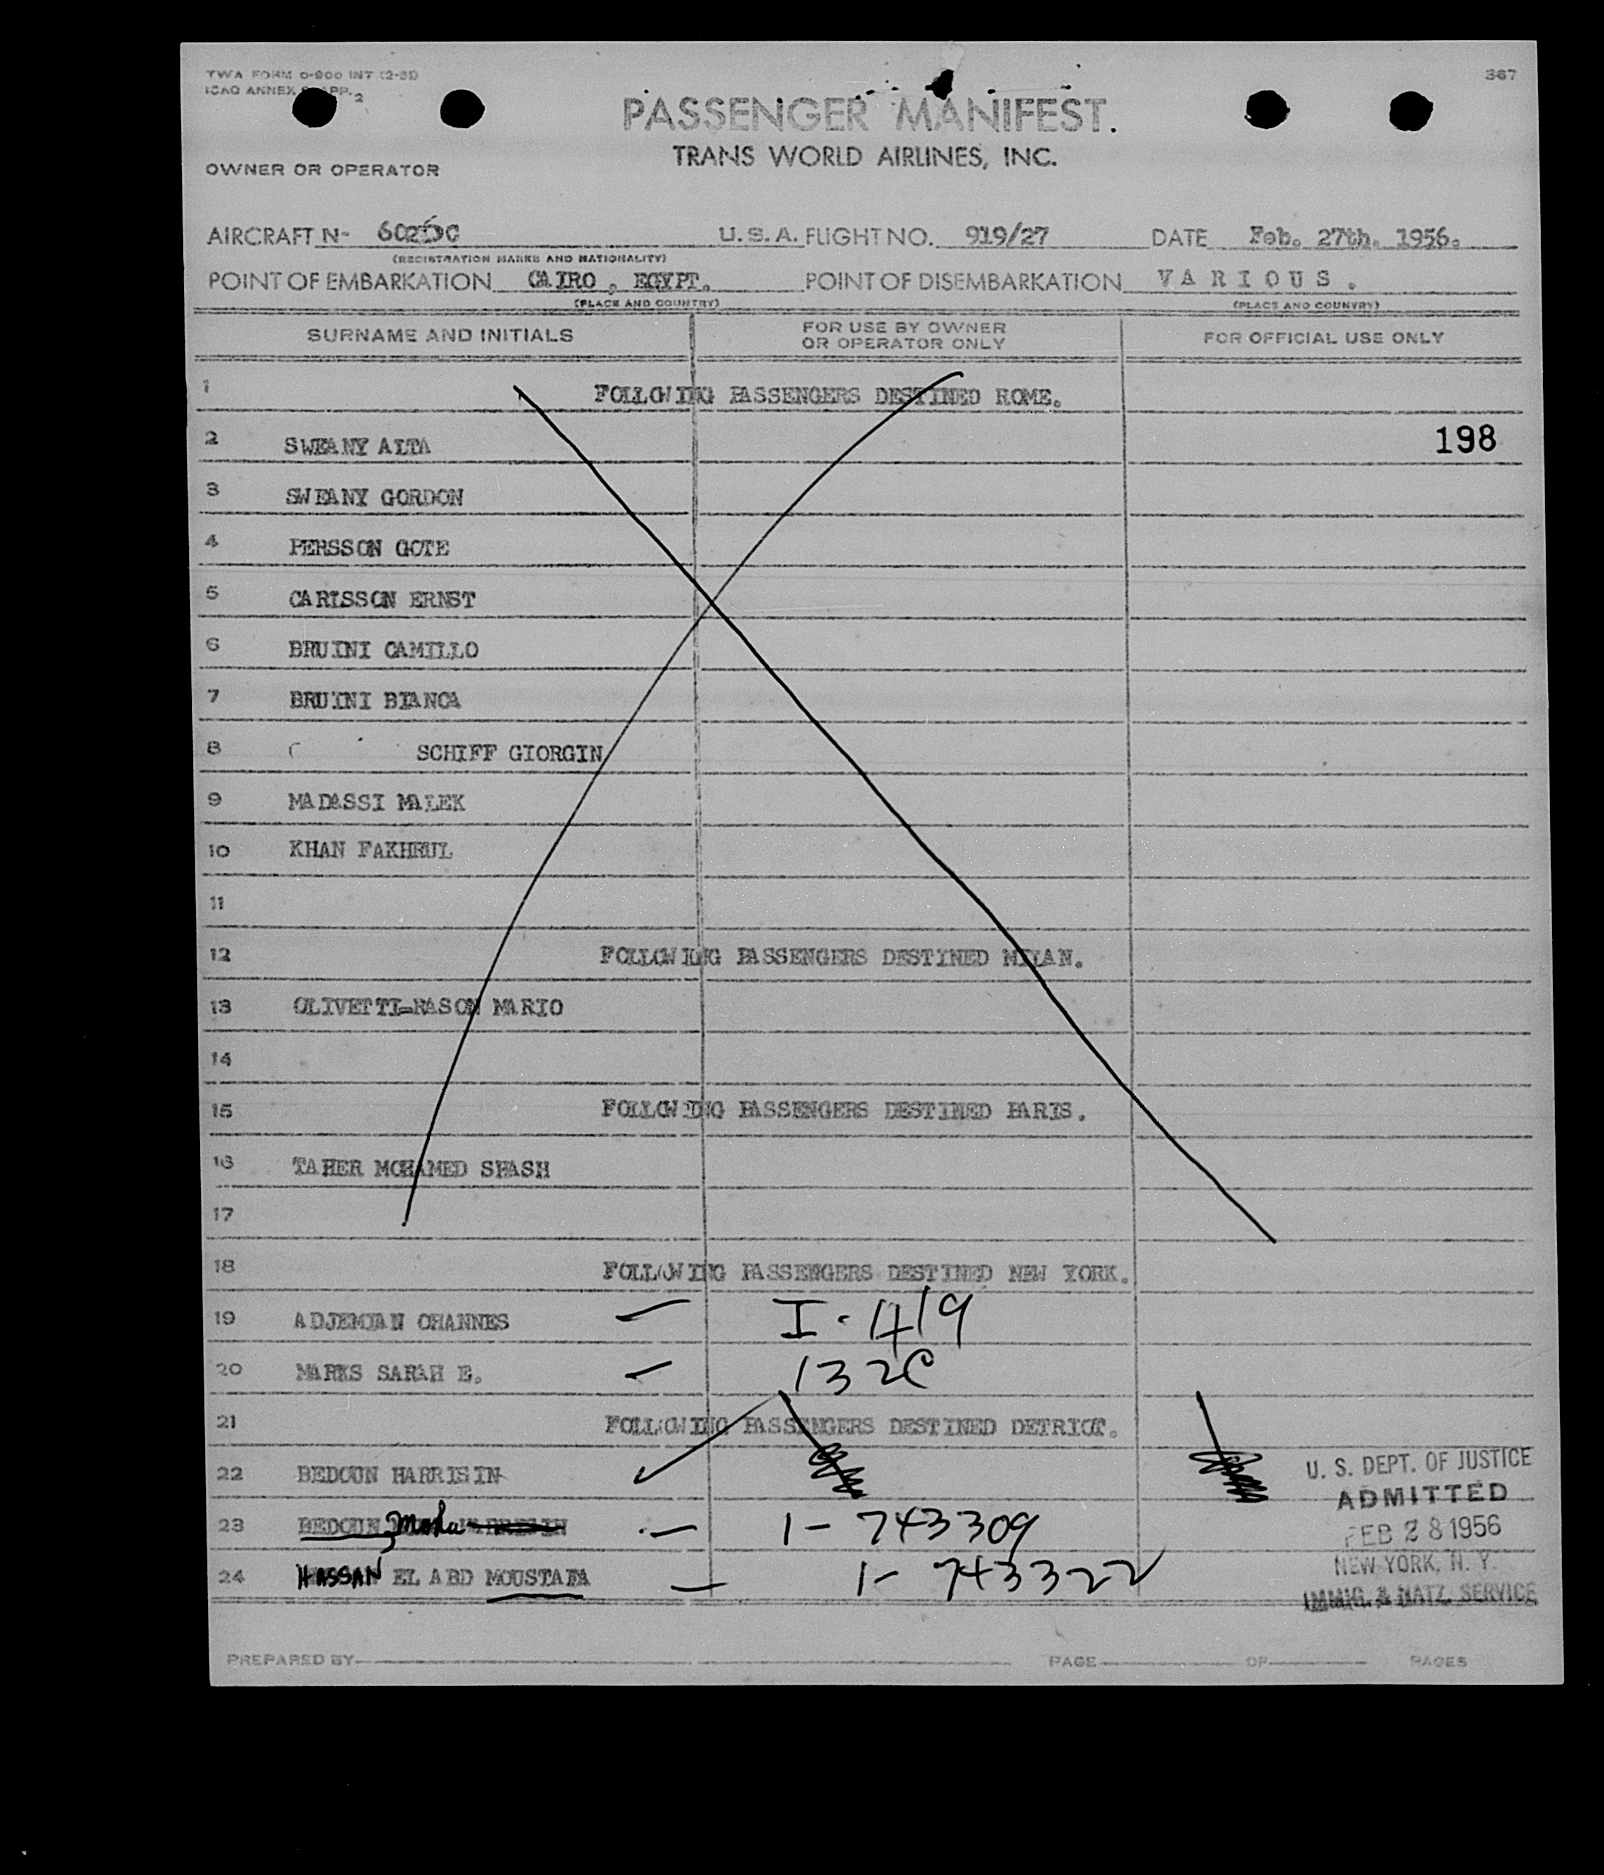 TWA FORM O-900 INT (2-51)
367
ICAO ANNEX 9 APP. 2
PASSENGER MANIFEST.
TRANS WORLD AIRLINES, INC.
OWNER OR OPERATOR
AIRCRAFT Nº 6025C U.S.A. FLIGHT NO. 919/27 DATE Feb. 27th. 1956.
(REGISTRATION MARKS AND NATIONALITY)
POINT OF EMBARKATION CAIRO , EGYPT. POINT OF DISEMBARKATION VARIOUS.
(PLACE AND COUNTRY) (PLACE AND COUNTRY)
SURNAME AND INITIALS FOR USE BY OWNER OR OPERATOR ONLY FOR OFFICIAL USE ONLY
1 FOLLOWING PASSENGERS DESTINED ROME.
2 SWEANY ALTA 198
3 SWEANY GORDON
4 PERSSON GOTE
5 CARLSSON ERNST
6 BRUINI CAMILLO
7 BRUINI BIANCA
8 SCHIFF GIORGIN
9 MADASSI MALEK
10 KHAN FAKHRUL
11
12 FOLLOWING PASSENGERS DESTINED MILAN.
13 OLIVETTI-RASON MARIO
14
15 FOLLOWING PASSENGERS DESTINED PARIS.
16 TAHER MOHAMED SHASH
17
18 FOLLOWING PASSENGERS DESTINED NEW YORK.
19 ADJEMIAN OHANNES — I-419
20 MARKS SARAH E. — 132C
21 FOLLOWING PASSENGERS DESTINED DETRIOT.
22 BEDOUN HARRISIN
23 BEDOUN — 1-743309
24 HASSAN EL ABD MOUSTAFA — 1-743322
U. S. DEPT. OF JUSTICE
ADMITTED
FEB 28 1956
NEW YORK, N. Y.
IMMIG. & NATZ. SERVICE
PREPARED BY PAGE OF PAGES